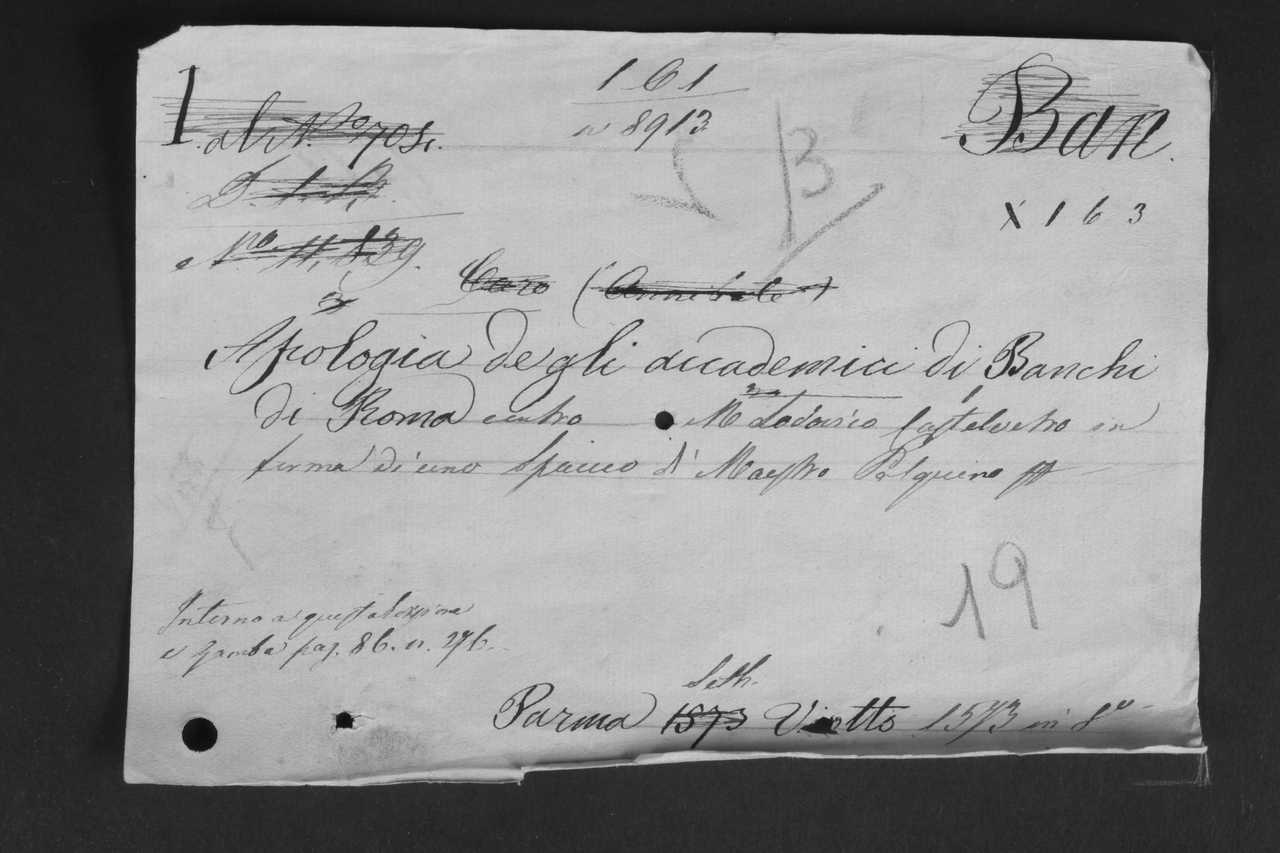 I
161
n 8913
Ban
B
X 163
Caro (Annibale)
Apologia degli accademici di Banchi
di Roma contro M Lodovico Castelvetro in
forma di uno Spaccio di Maestro Pasquino
19
Intorno a questa
v Gamba pag. 86. n. 276.
Seth.
Parma 1573 Viotto 1573 in 8º